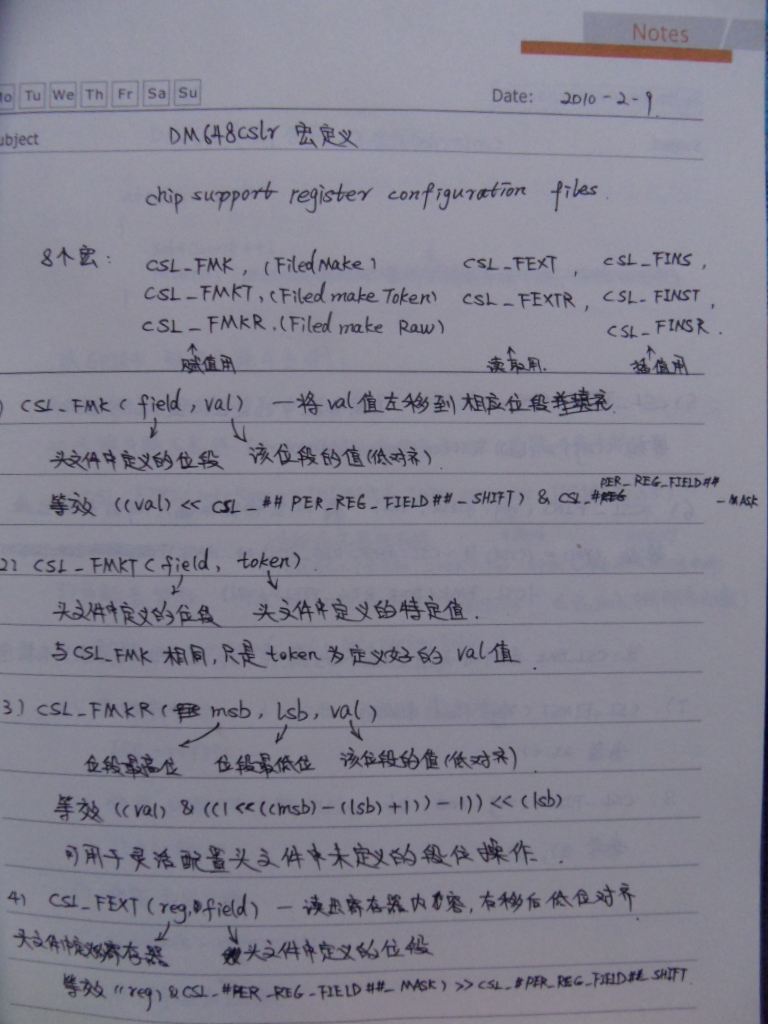 Notes
Mo Tu We Th Fr Sa Su Date: 2010-2-9
ubject DM648cslr 宏定义
chip support register configuration files.
8个宏: CSL_FMK, (Filed Make) CSL_FEXT, CSL_FINS,
CSL_FMKT, (Filed make Token) CSL_FEXTR, CSL_FINST,
CSL_FMKR. (Filed make Raw) CSL_FINSR.
赋值用 读取用. 插值用
) CSL_FMK ( field, val) 一将val值左移到相应位段并填充.
头文件中定义的位段 该位段的值(低对齐).
等效 ((val) << CSL_##PER_REG_FIELD##_SHIFT) & CSL_#PER_REG_FIELD##_MASK
2) CSL_FMKT (field, token).
头文件中定义的位段 头文件中定义的特定值.
与CSL_FMK相同,只是token为定义好的val值.
3) CSL_FMKR ( msb, lsb, val)
位段最高位 位段最低位 该位段的值(低对齐).
等效 ((val) & ((1<<((msb)-(lsb)+1))-1)) << (lsb)
可用于灵活配置头文件中未定义的段位操作.
4) CSL_FEXT (reg, field) 一读出寄存器内容,右移后低位对齐
头文件中定义寄存器 头文件中定义的位段
等效 ((reg) & CSL_#PER_REG_FIELD##_MASK) >> CSL_#PER_REG_FIELD##_SHIFT